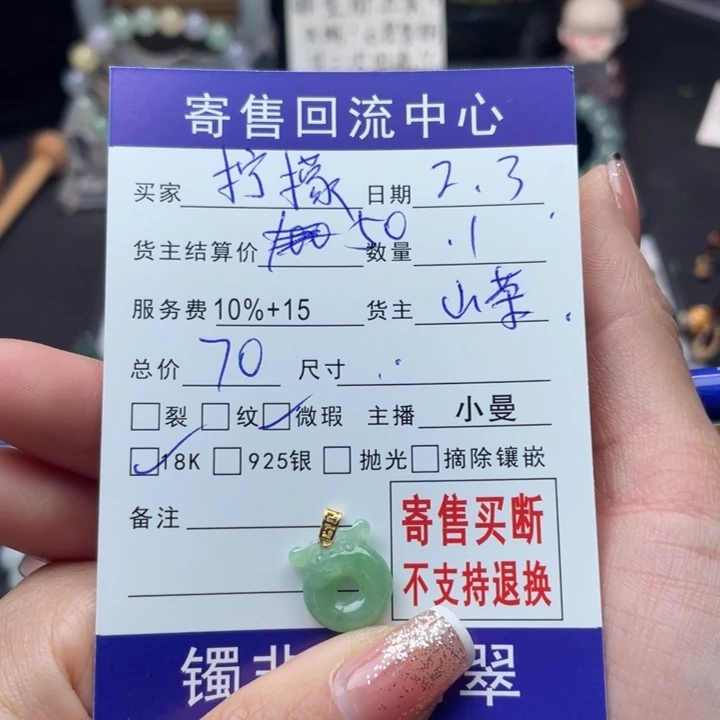 寄售回流中心
买家 柠檬 日期 2.3
货主结算价 50 数量 1
服务费 10%+15 货主 山菜
总价 70 尺寸
裂 纹 微瑕 主播 小曼
18K 925银 抛光 摘除镶嵌
备注
寄售买断
不支持退换
镯 翠